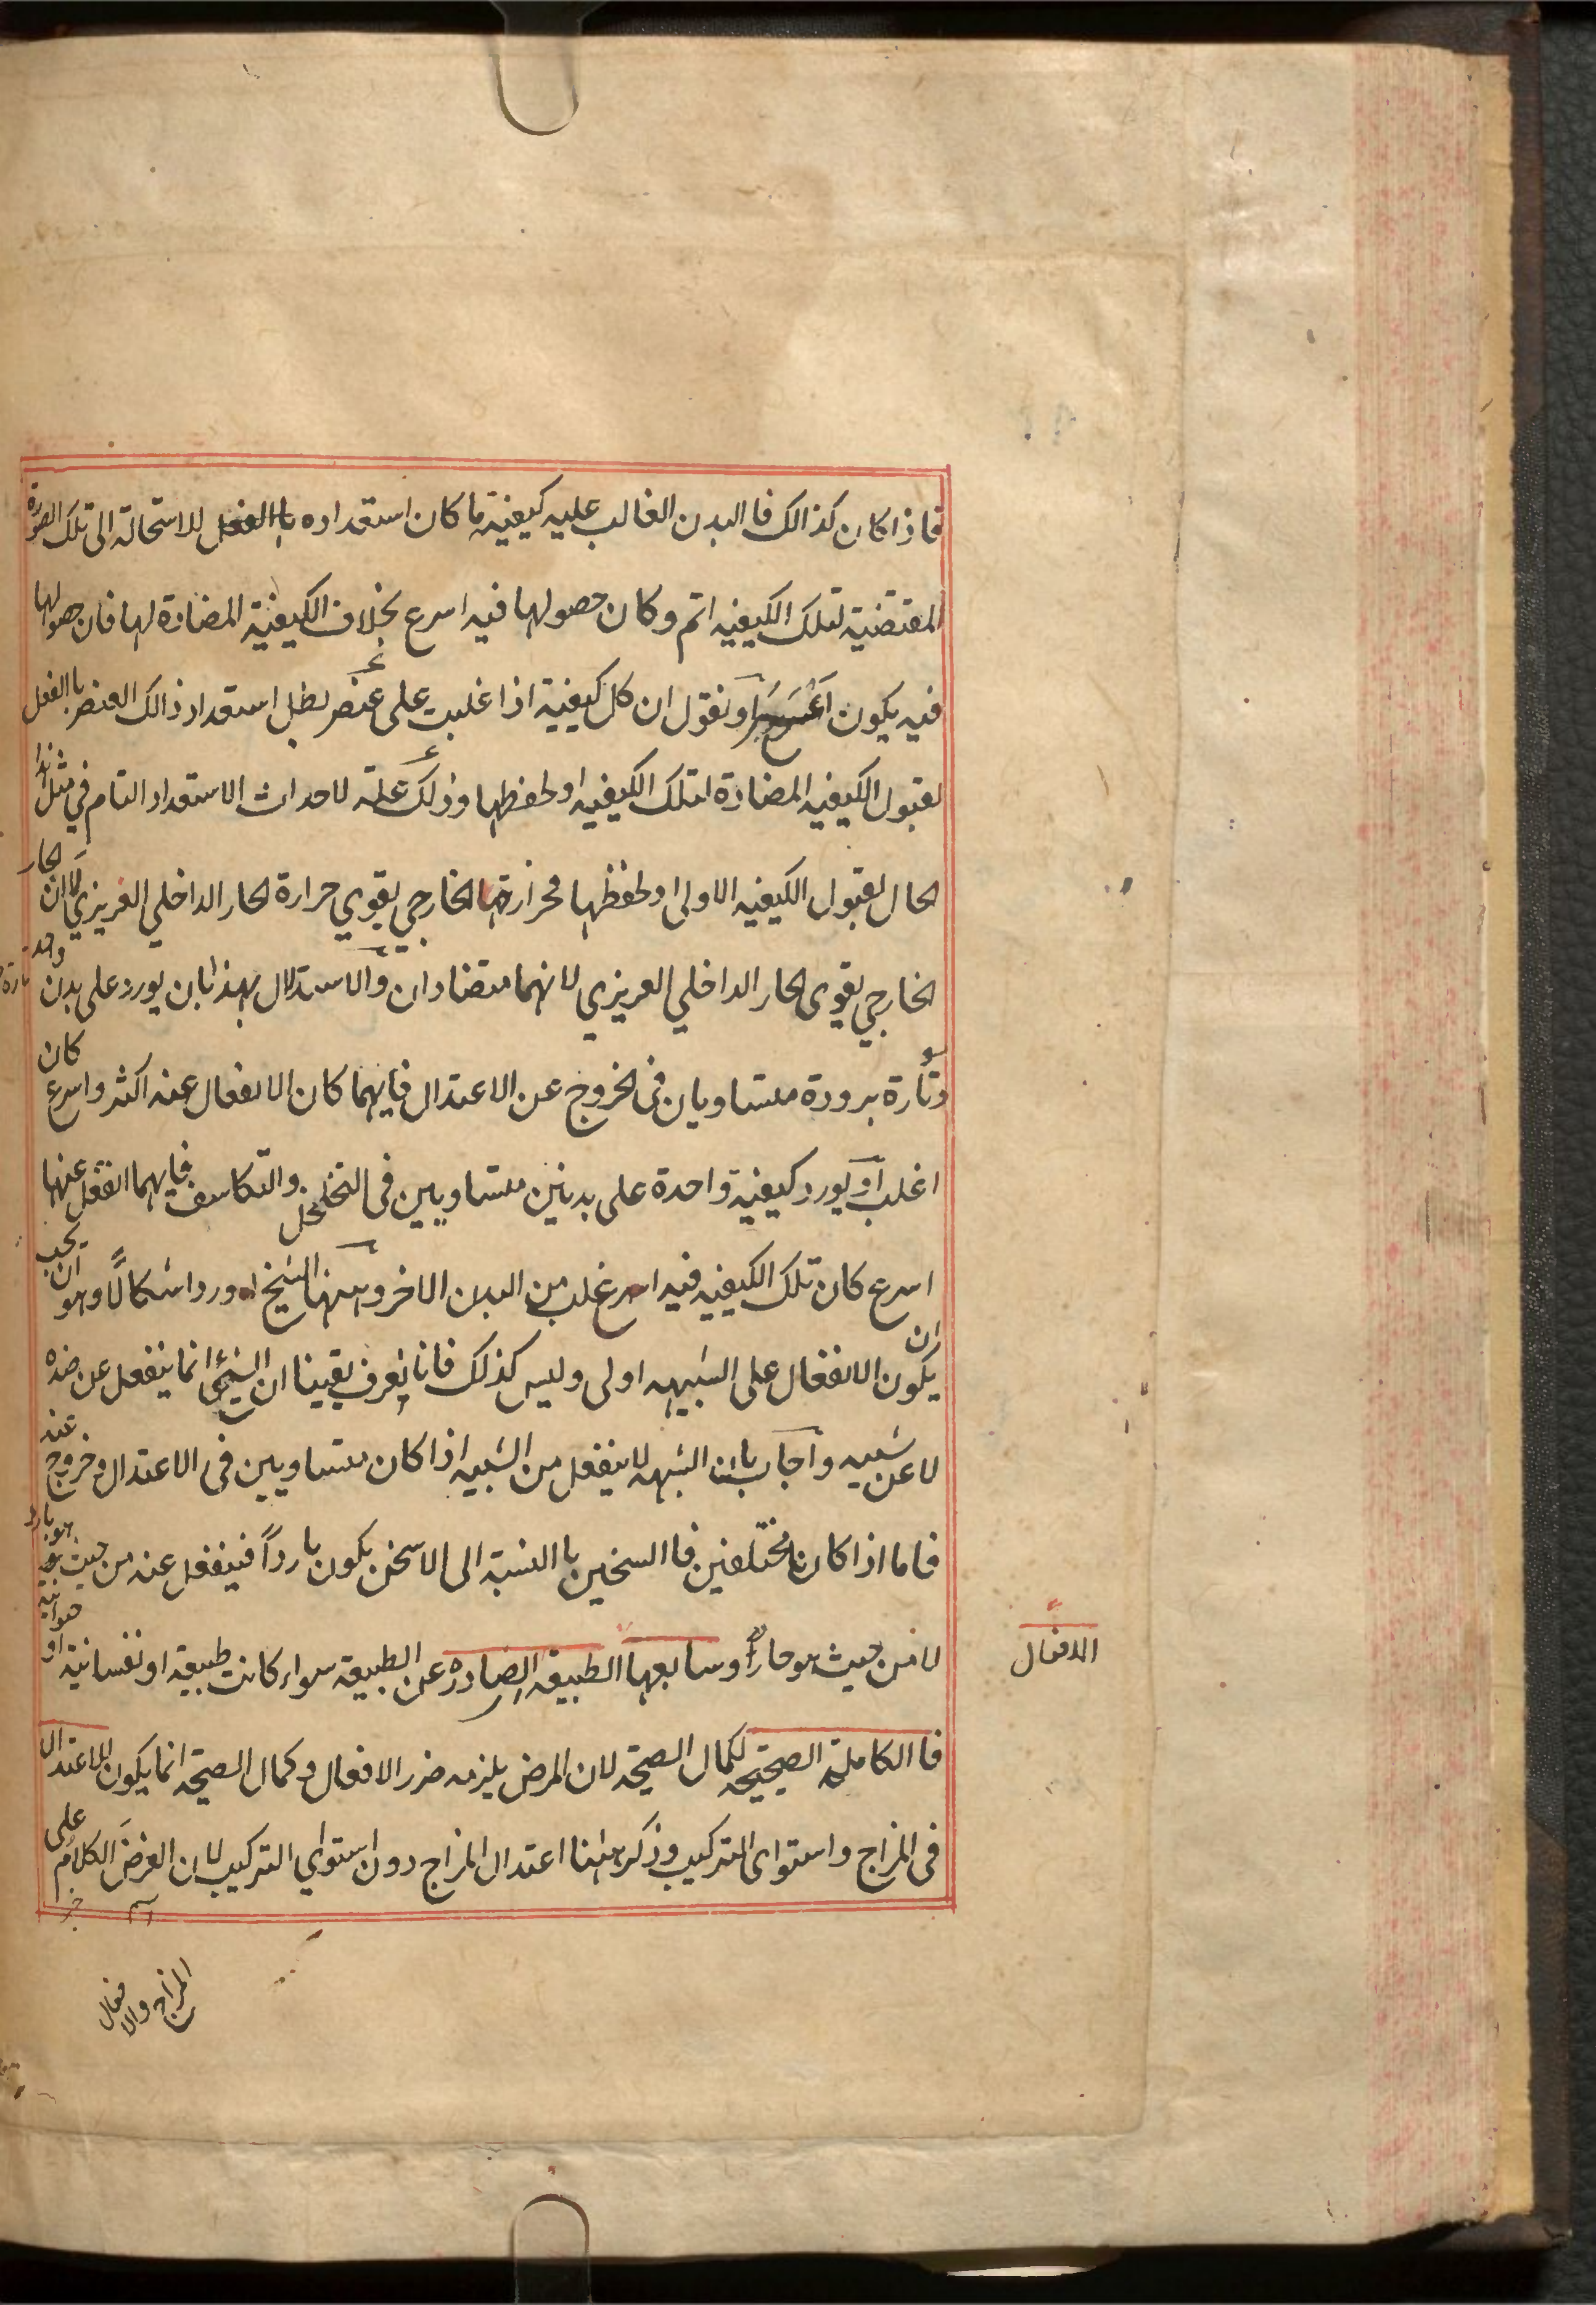 فاذا كان كذالك فا البدن الغالب عليه كيفية ما كان استعداده باالفعل للاستحالة الى تلك الصورة
المقتضية لتلك الكيفيه اتم وكان حصولها فيه اسرع بخلاف الكيفية المضادة لها فان حصولها
فيه يكون اعسر ونقول ان كل كيفية اذا غلبت على عنصر بطل استعداد ذالك العنصر باالفعل
لقبول الكيفيه المضادة لتلك الكيفيه او لحفظها وذلك علة لاحداث الاستعداد التام في مثل هذا
الحال لقبول الكيفيه الاولى او لحفظها فحرارة الخارجي يقوي حرارة الحار الداخلي الغريزي لا ان الحار
الخارجي يقوى الحار الداخلي الغريزي لانهما متضادان والاستدلال بهذا بان يورد على بدن واحد تارة
وتارة برودة متساويان فى الخروج عن الاعتدال فايهما كان الانفعال عنه اكثر واسرع كان
اغلب او يورد كيفية واحدة على بدنين متساويين فى التخلخل والتكاسف فايهما انفعل عنها
اسرع كان تلك الكيفيه فيه اغلب من البدن الاخر وههنا الشيخ اورد اشكالًا وهو ان يجب
ان يكون الانفعال على الشبيه اولى وليس كذلك فانا نعرف يقينا ان الشيئ انما ينفعل عن ضده
لا عن شبيه واجاب بان الشبيه لا ينفعل من الشبيه اذا كان متساويين فى الاعتدال وخروج عنه
فاما اذا كانا مختلفين فا السخين باالنسبة الى الاسخن يكون بارداً فينفعل عنه من حيث هو بارد
لا من حيث هو حاراً وسابعها الطبيعه الصادره عن الطبيعة سواء كانت طبيعيه او نفسانية او حيوانيه
الافعال
فا الكاملة الصحيحه لكمال الصحة لان المرض يلزمه ضرر الافعال وكمال الصحة انما يكون للاعتدال
فى المزاج واستواى التركيب وذكر هٰهنا اعتدال المزاج دون استواي التركيب لان الغرض الكلام على
المزاج والافعال